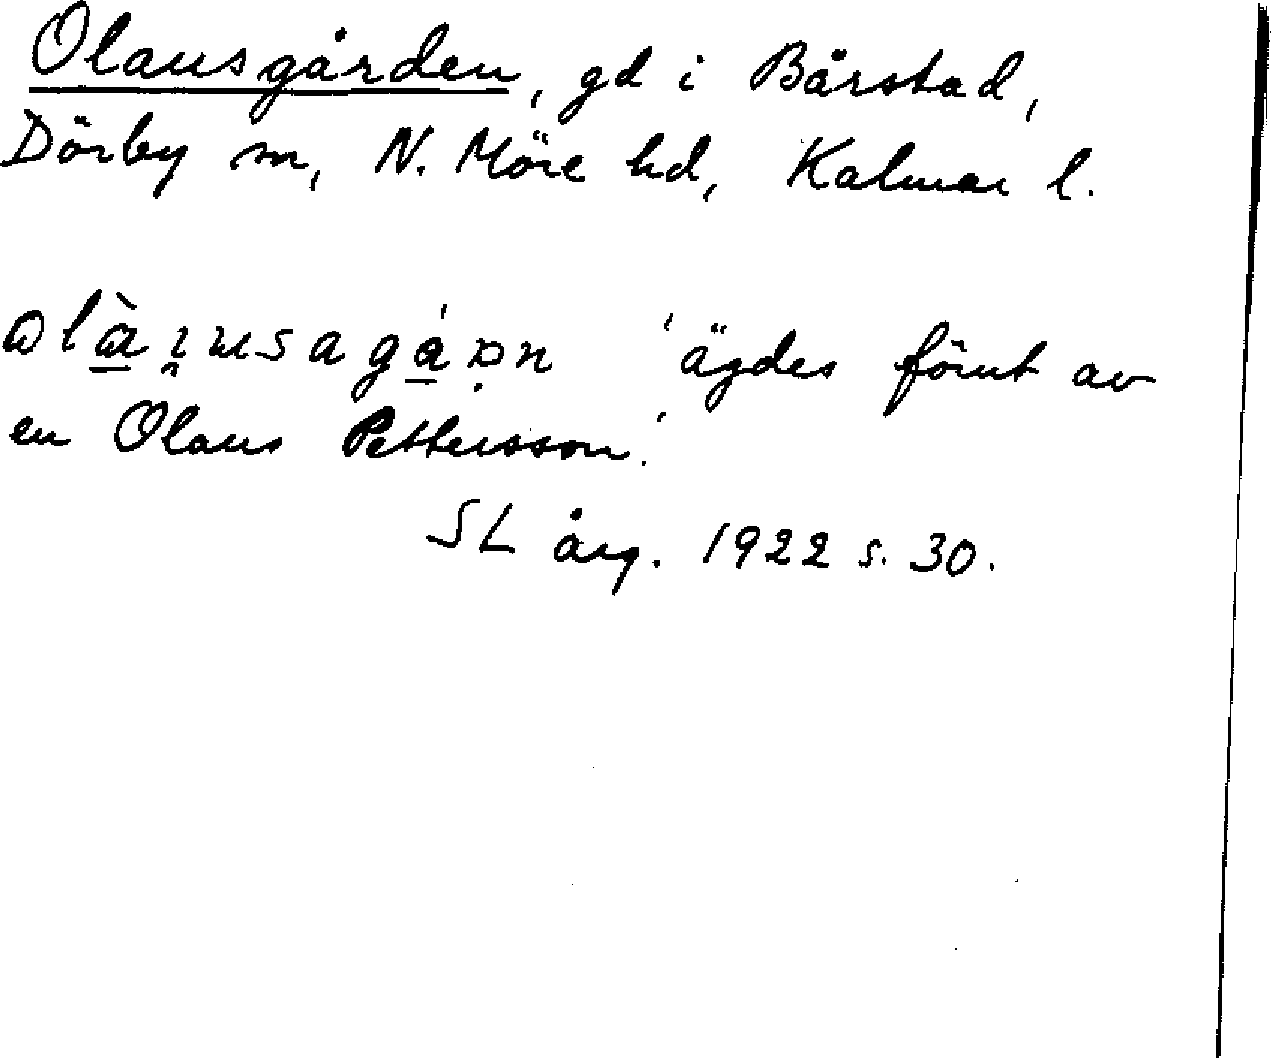 Olausgården, gd i Bårstad,
Dörby sn, N. Möre hd, Kalmar l.
'ägdes förut av
en Olaus Pettersson.'
SL årg. 1922 s. 30.